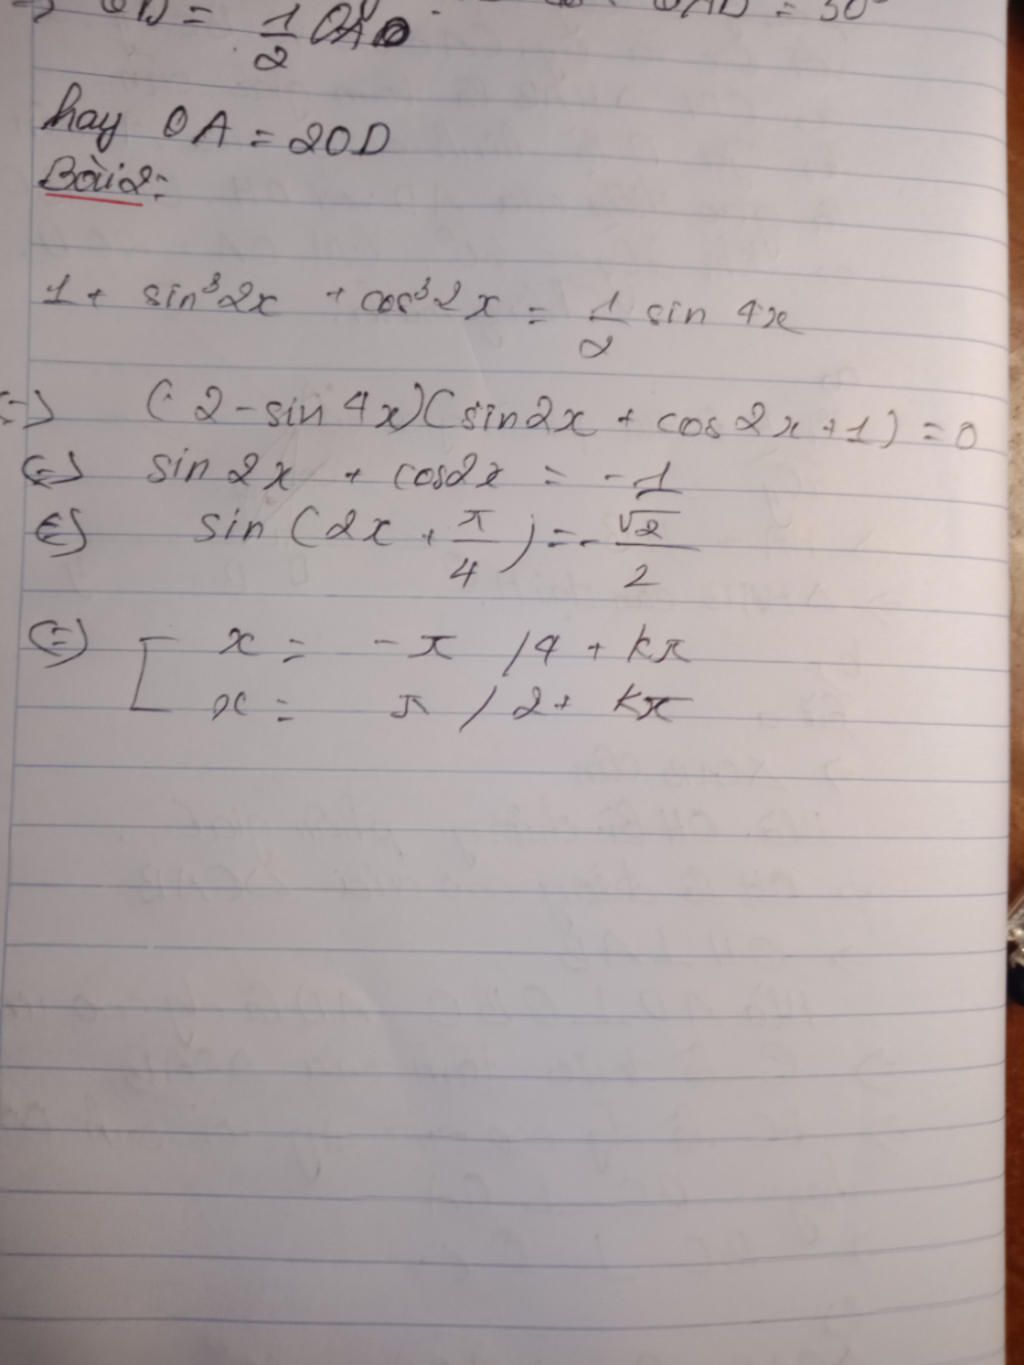 = 1/2 OA
hay OA = 2OD
Bài 2:
1 + sin³2x + cos³2x = 1/2 sin 4x
(2 - sin 4x)(sin2x + cos2x + 1) = 0
(=) sin 2x + cos2x = -1
(=) sin (2x + π/4) = - √2/2
(=) [ x = -π /4 + kπ
x = π / 2 + kπ